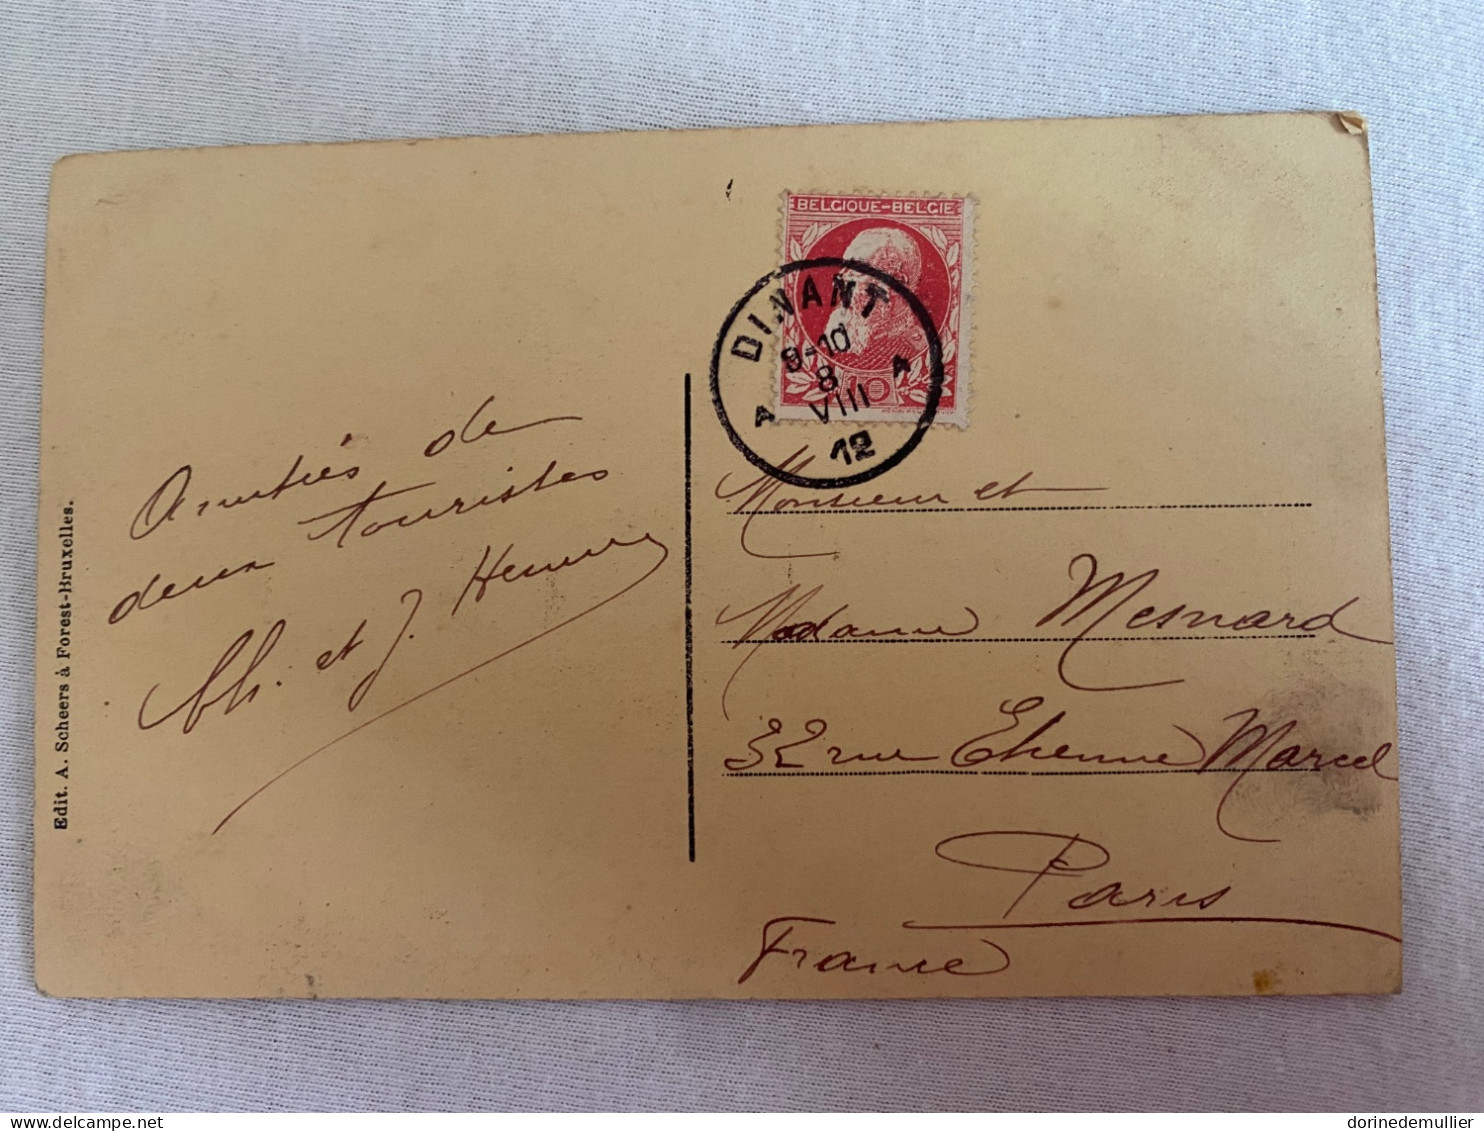 Edit. A. Scheers à Forest-Bruxelles.
Amitiés de
deux touristes
Ch. et J.
BELGIQUE-BELGIË
10
DINANT
9-10
8
VIII
12
A A
Monsieur et
Madame Mesnard
32 rue Etienne Marcel
Paris
France
dorinedemullier